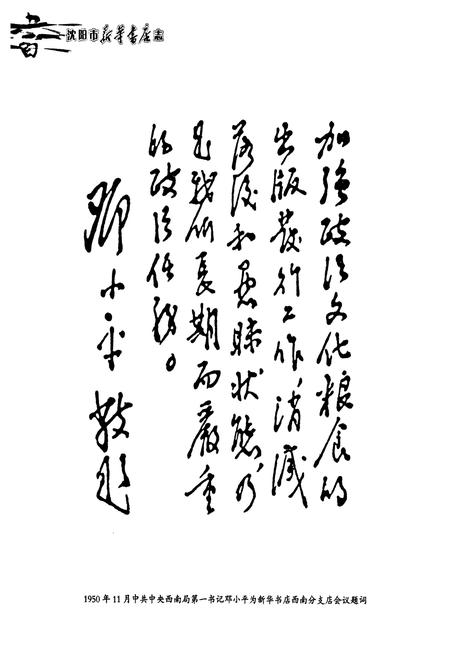 沈阳市新华书店志
加強政治文化粮食的
出版發行工作，消滅
落後和愚昧状態，乃
是我们長期而嚴重
的政治任務。
鄧小平敬題
1950年11月中共中央西南局第一书记邓小平为新华书店西南分支店会议题词